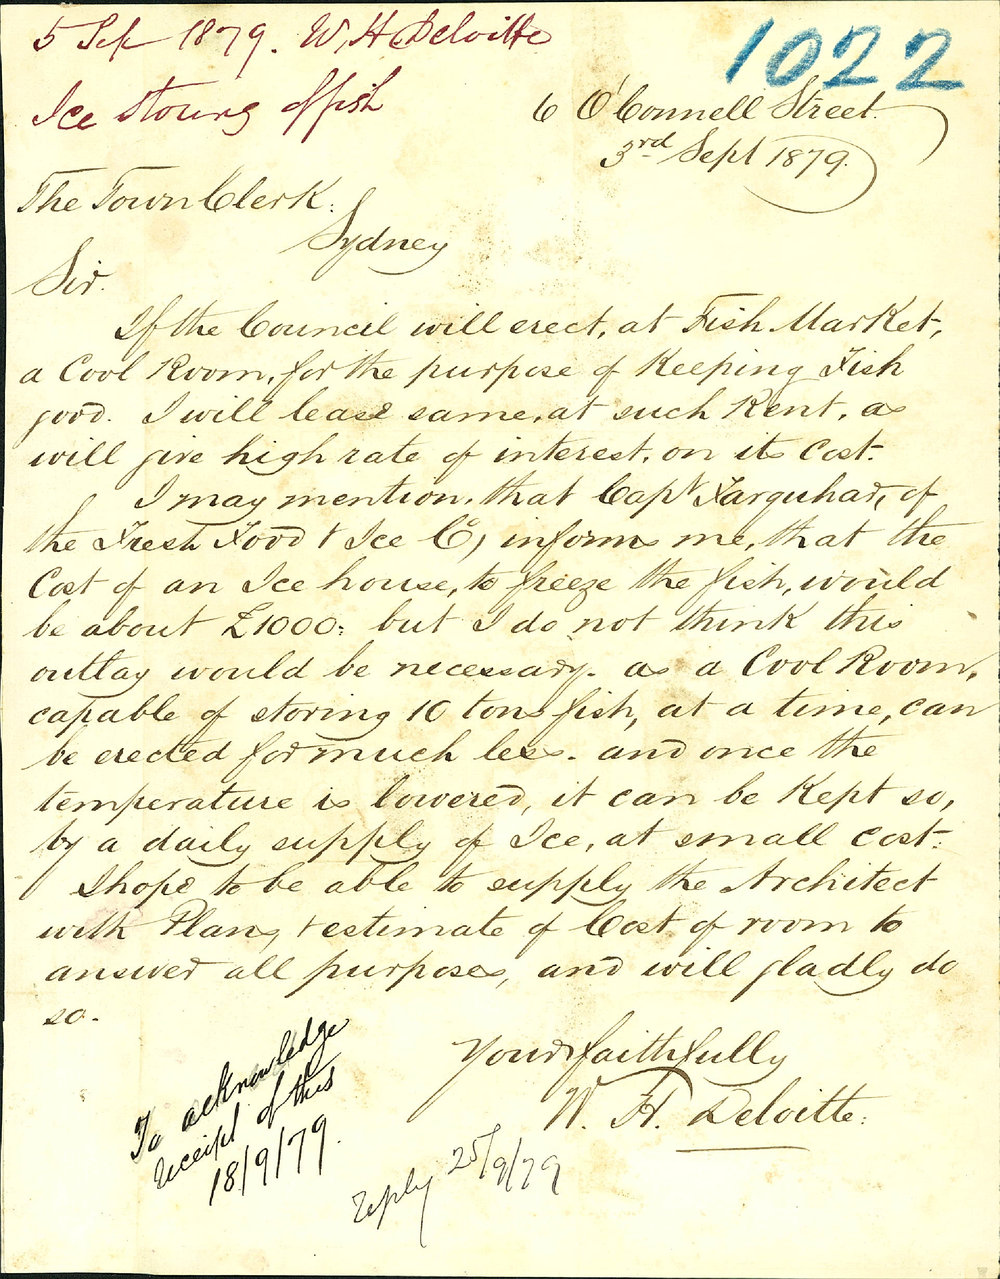 5 Sep 1879. W. H. Deloitte
Ice storing of fish
1022
6 O'Connell Street.
3rd Sept 1879.
The Town Clerk.
Sydney
Sir.
If the Council will erect, at Fish Market,
a Cool Room, for the purpose of Keeping Fish
good. I will lease same, at such Rent, as
will give high rate of interest, on its Cost.
I may mention, that Capt Farquhar, of
the Fresh Food & Ice Co, informs me, that the
Cost of an Ice house, to freeze the fish, would
be about £1000: but I do not think this
outlay would be necessary. as a Cool Room,
capable of storing 10 tons fish, at a time, can
be erected for much less. and once the
temperature is lowered, it can be Kept so,
by a daily supply of Ice, at small cost.
I hope to be able to supply the Architect
with Plans, & estimate of Cost of room to
answer all purposes, and will gladly do
so.
Yours faithfully
W. H. Deloitte.
To acknowledge
receipt of this
18/9/79.
reply 25/9/79